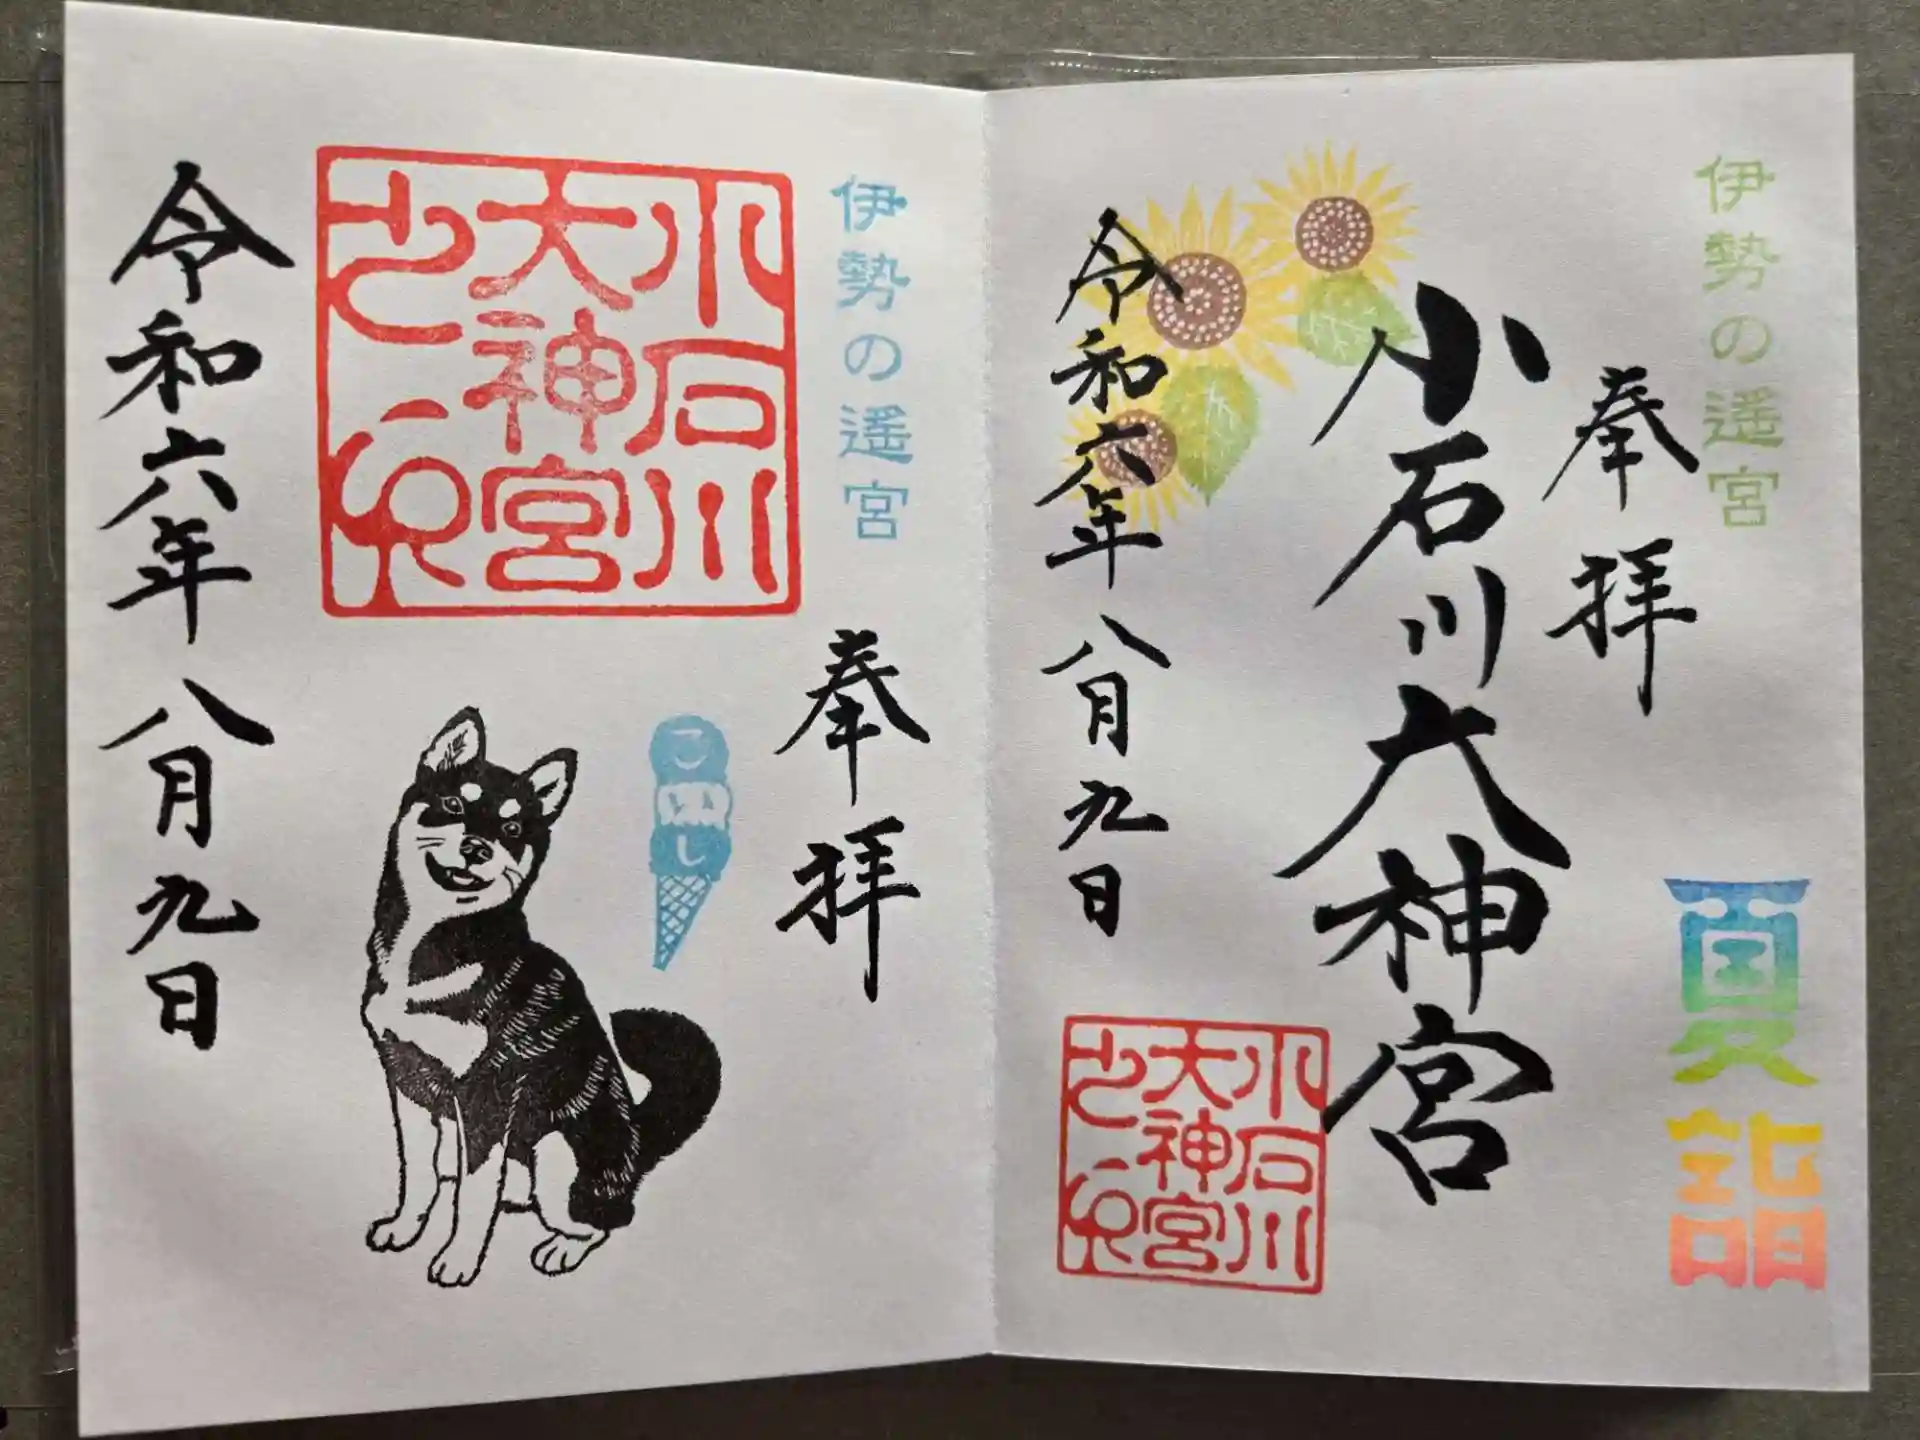 伊勢の遥宮
奉拝
小石川大神宮
令和六年八月九日
夏詣
小石川
大神宮
之印
伊勢の遥宮
奉拝
こいし
小石川
大神宮
之印
令和六年八月九日